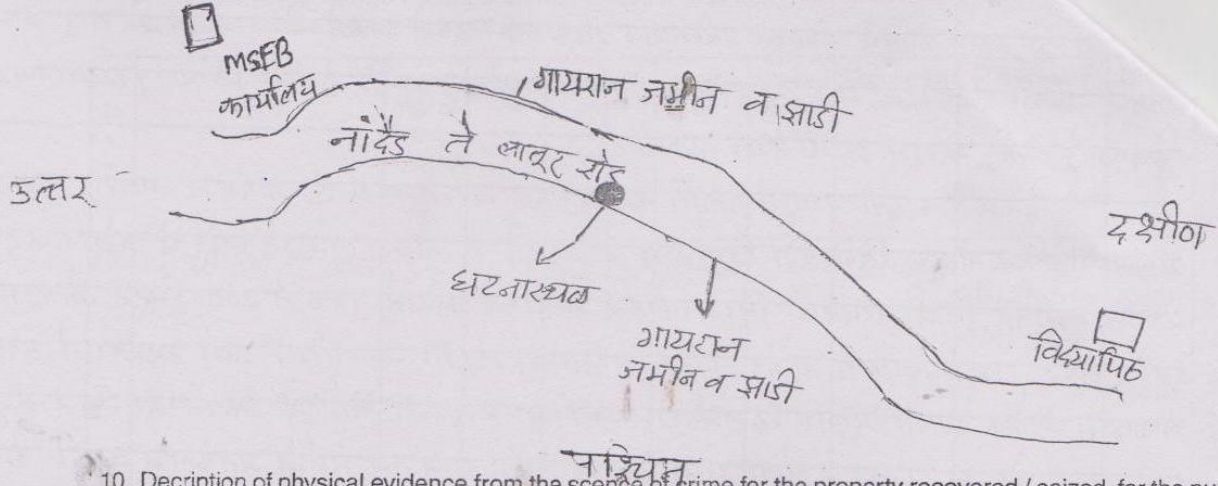 MSEB
कार्यालय
गायरान जमीन व झाडी
नांदेड ते लातूर रोड
उत्तर
दक्षीण
घटनास्थळ
गायरान
जमीन व झाडी
विद्यापिठ
पश्चिम
10. Decription of physical evidence from the scence of crime for the property recovered / seized, for the